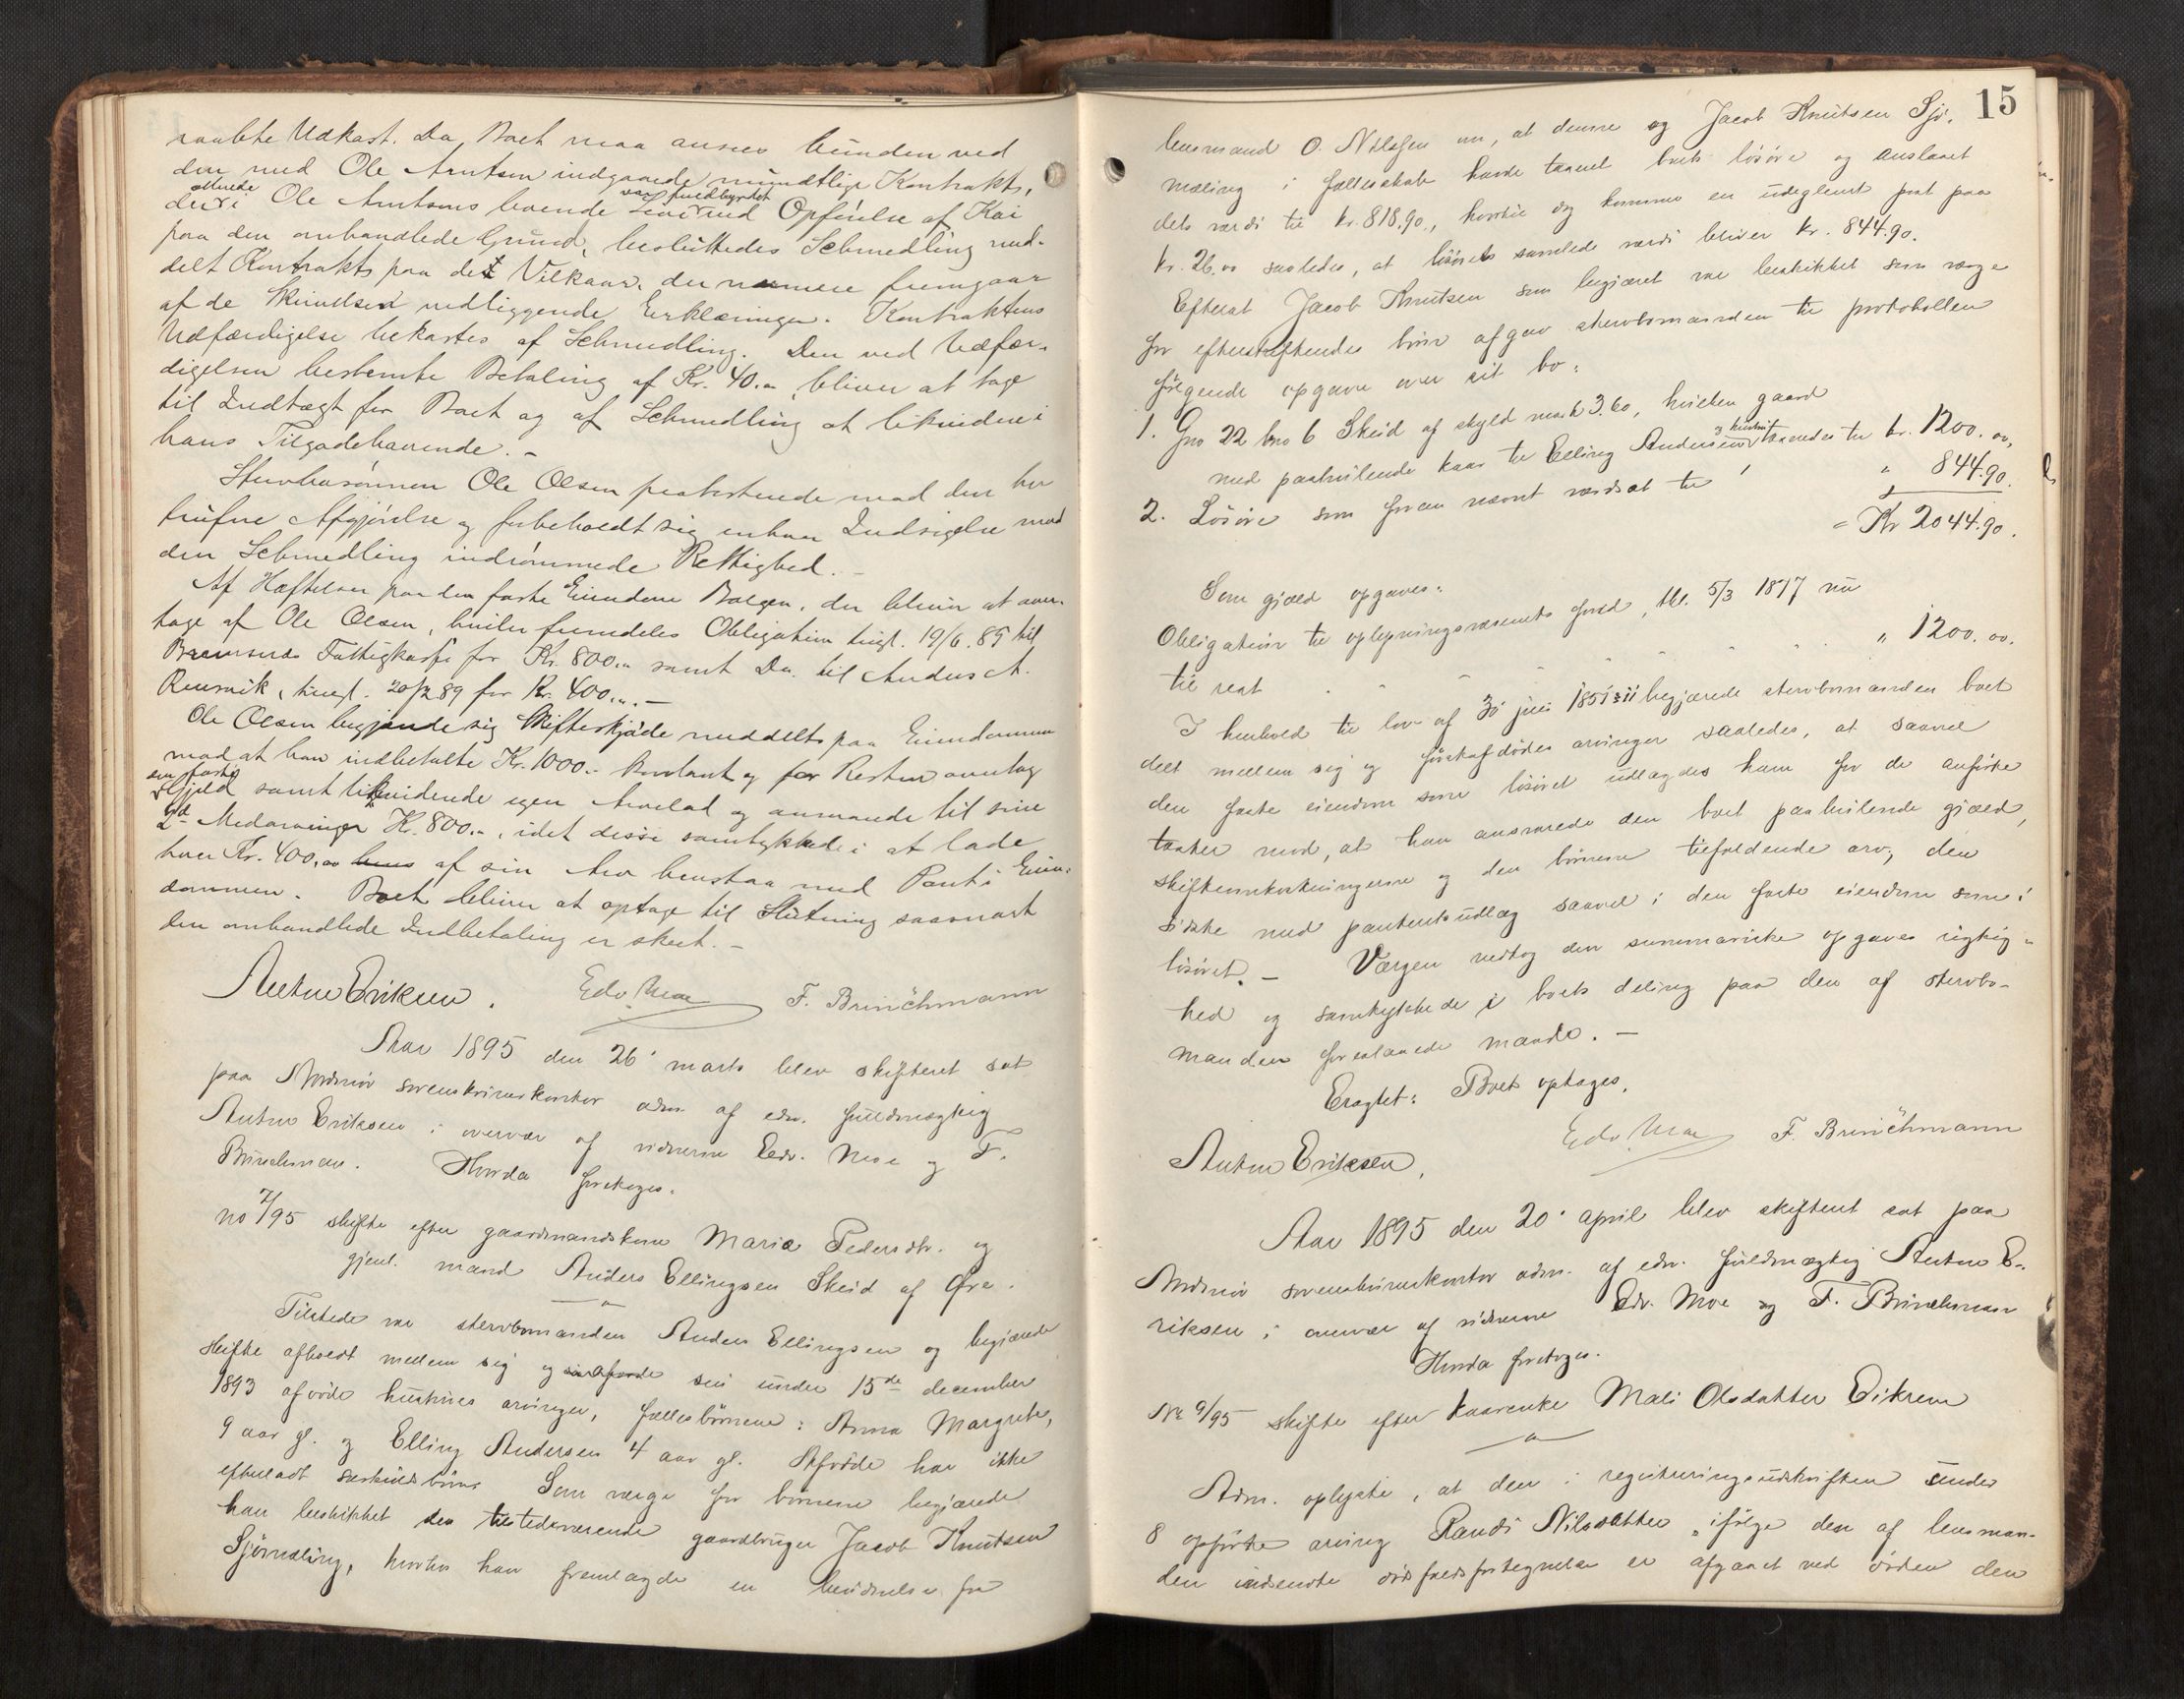 raabte Udkast. Da Boet maa ansees bunden ved
den med Ole Arntsen indgaaede mundtlige Kontrakt,
der i Ole Arntsens levende Live ved Opførelse af Kai
allerede var fuldbyrdet
paa den omhandlede Grund, besluttedes Schmedling med-
delt Kontrakt paa det Vilkaar, der nærmere fremgaar
af de Skiftet vedliggende Erklæringer. Kontraktens
Udfærdigelse bekostes af Schmedling. Den ved Udfær-
digelsen bestemte Betaling af Kr. 40.00 bliver at tage
til Indtægt for Boet og af Schmedling at likvidere i
hans Tilgodehavende. -
Stervbosønnen Ole Olsen protesterede mod den her
trufne Afgjørelse og forbeholdt sig enhver Indsigelse mod
den Schmedling indrømmede Rettighed. -
Af Hæftelser paa den faste Eiendom Bolgen, der bliver at over-
tage af Ole Olsen, hviler fremdeles Obligation tingl. 19/6. 85 til
Bremsnes Fattigkasse for Kr. 800.00 samt Do. til Anders A.
Rensvik, tingl. 20/2 89 for Kr. 400.00. -
Ole Olsen begjærede sig Skifteskjøde meddelt paa Eiendommen
mod at han indbetalte Kr. 1000.- kontant og for Resten overtog
Gjeld samt likviderede egen Arvelod og ansvarede til sine
2de Medarvinger Kr. 800.-, idet disse samtykkede i at lade
hver Kr. 400.00 af sin Arv henstaa med Pant i Eien-
dommen. Boet bliver at optage til Slutning saasnart
den omhandlede Indbetaling er skeet. -
Anton Eriksen. Edv. Moe F. Brinchmann
Aar 1895 den 26' marts blev skifteret sat
paa Nordmør sorenskriverkontor adm. af edsv. fuldmægtig
Anton Eriksen i overvær af vidnerne Edv. Moe og F.
Brinchmann. Hvorda foretoges.
No 7/95 skifte efter gaardmandskone Maria Pedersdtr. og
gjenl. mand Anders Ellingsen Skeid af Øre.
Tilstede var stervbomanden Anders Ellingsen og begjærede
skifte afholdt mellem sig og sin under 15de december
1893 afdøde hustrues arvinger, fællesbørnene: Anna Margrete,
9 aar gl. og Elling Andersen 4 aar gl. Afdøde har ikke
efterladt særkuldsbørn. Som værge for børnene begjærede
han beskikket den tilstedeværende gaardbruger Jacob Knutsen
Sjømæling, hvorhos han fremlagde en bevidnelse fra
15
lensmand O. Nilssen om, at denne og Jacob Knutsen Sjø-
mæling i fællesskab havde taxeret boets løsøre og anslaaet
dets værdi til kr. 818.90, hvortil og kommer en udeglemt post paa
kr. 26.00 saaledes, at løsørets samlede værdi bliver kr. 844.90.
Efterat Jacob Knutsen som begjæret var beskikket som værge
for efterskiftendes børn afgav stervbomanden til protokollen
følgende opgave over sit bo:
1. Gno 22 bno 6 Skeid af skyld mark 3.60, hvilken gaard
med paahvilende kaar til Elling Andersen og hustru toges til kr. 1200.00,
2. Løsøre som foran nævnt værdsat til " 844.90.
= Kr 2044.90.
Som gjæld opgaves:
Obligation til oplysningsvæsenets fond, tgl. 5/3 1877 nu
til rest " 1200.00.
I henhold til lov af 30 juli 1851 § 11 begjærede stervbomanden boet
delt mellem sig og førstafdødes arvinger saaledes, at saavel
den faste eiendom som løsøret udlagdes ham for de anførte
taxter mod, at han ansvarede den boet paahvilende gjæld,
skifteomkostningerne og den børnene tilfaldende arv, den
sidste med panteretsudlæg saavel i den faste eiendom som i
løsøret. - Værgen vedtog den summariske opgaves rigtig-
hed og samtykkede i boets deling paa den af stervbo-
manden foreslaaede maade. -
Eragtet: Boet optages.
Anton Eriksen. Edv. Moe F. Brinchmann
Aar 1895 den 20' april blev skifteret sat paa
Nordmør sorenskriverkontor adm. af edsv. fuldmægtig Anton E-
riksen i overvær af vidnerne Edv. Moe og F. Brinchmann
Hvorda foretoges.
No 9/95 skifte efter kaarenke Mali Olsdatter Eikrem
Adm. oplyste, at den i registreringsudskriften under
8 opførte arving Randi Nilsdatter ifølge den af lensman-
den indsendte dødsfaldsfortegnelse er afgaaet ved døden den